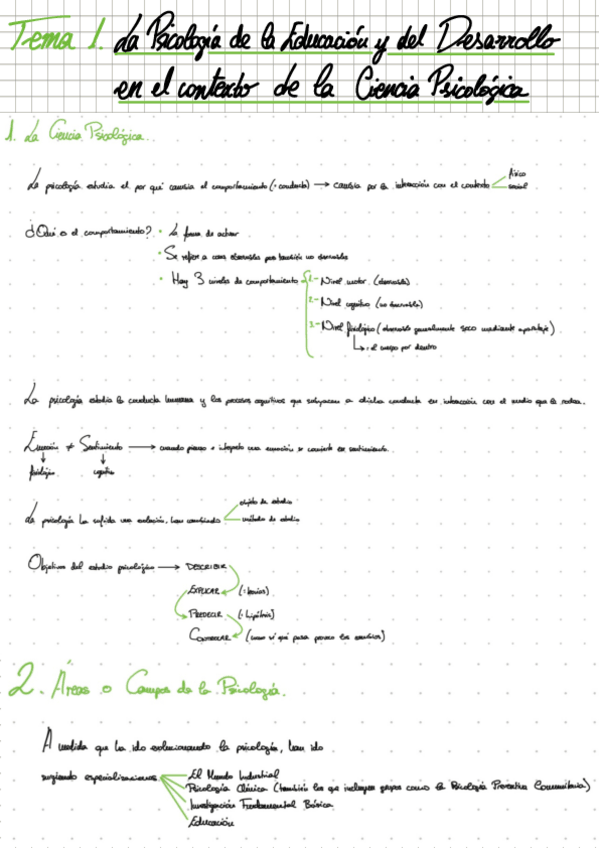 Tema 1. La Psicología de la Educación y del Desarrollo
en el contexto de la Ciencia Psicológica
1. La Ciencia Psicológica.
La psicología estudia el por qué cambia el comportamiento (: conducta) → cambia por la interacción con el contexto
físico
social
¿Qué es el comportamiento? • La forma de actuar
• Se refiere a cosas observables pero también no observables
• Hay 3 niveles de comportamiento
1.- Nivel motor (observable)
2.- Nivel cognitivo (no observable)
3.- Nivel fisiológico (observable parcialmente solo mediante aparataje)
↳ : el cuerpo por dentro
La psicología estudia la conducta humana y los procesos cognitivos que subyacen a dicha conducta en interacción con el medio que le rodea.
Emoción ≠ Sentimiento → cuando pienso e interpreto una emoción se convierte en sentimiento.
fisiológico cognitivo
La psicología ha sufrido una evolución, han cambiado
objeto de estudio
método de estudio
Objetivos del estudio psicológico → DESCRIBIR
EXPLICAR (: teorías)
PREDECIR (: hipótesis)
CONTROLAR (como sé qué pasa provoco los cambios)
2. Áreas o Campos de la Psicología.
A medida que ha ido evolucionando la psicología, han ido
surgiendo especializaciones
El Mundo Industrial
Psicología Clínica (también los que incluyen grupos como la Psicología Preventiva Comunitaria)
Investigación Fundamental Básica
Educación